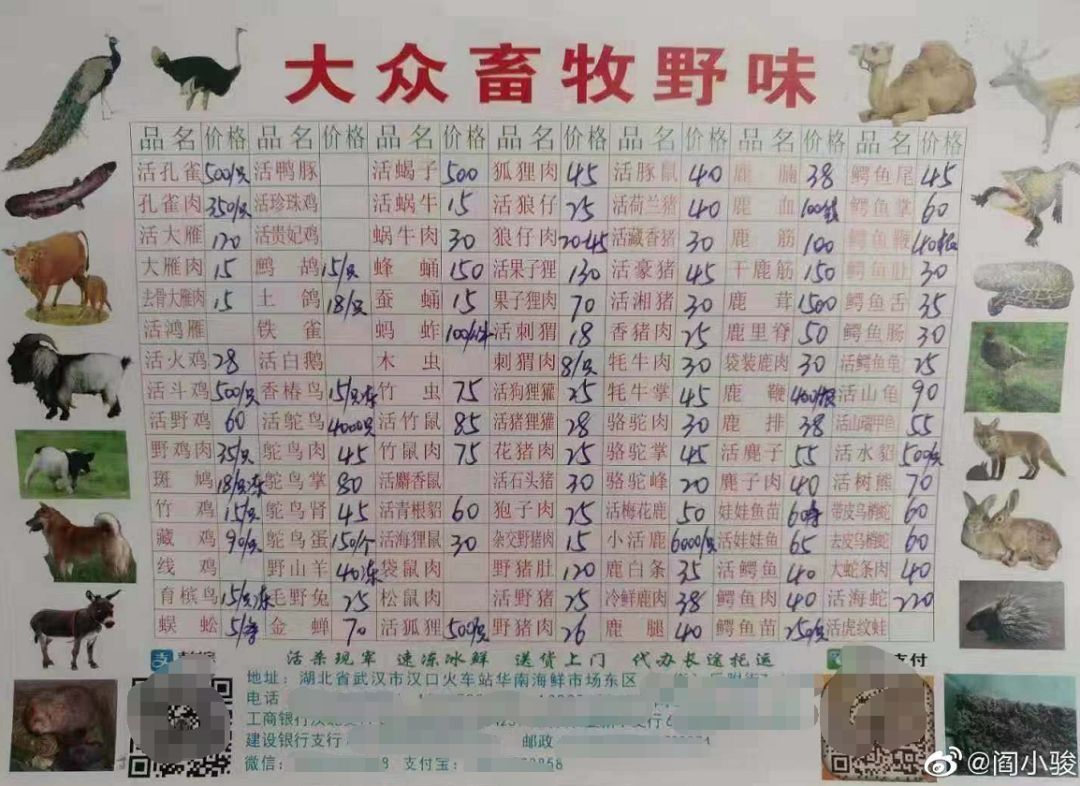 大众畜牧野味
品名 价格 品名 价格 品名 价格 品名 价格 品名 价格 品名 价格 品名 价格
活孔雀 500/只 活鸭豚 活蝎子 500 狐狸肉 45 活豚鼠 40 鹿腩 38 鳄鱼尾 45
孔雀肉 350/只 活珍珠鸡 活蜗牛 15 活狼仔 25 活荷兰猪 40 鹿血 鳄鱼掌 60
活大雁 120 活贵妃鸡 蜗牛肉 30 狼仔肉 20-45 活藏香猪 30 鹿筋 100 鳄鱼鞭
大雁肉 15 鹧鸪 15/只 蜂蛹 150 活果子狸 130 活豪猪 45 干鹿筋 150 鳄鱼肚 30
去骨大雁肉 15 土鸽 18/只 蚕蛹 15 果子狸肉 70 活湘猪 30 鹿茸 1500 鳄鱼舌 35
活鸿雁 铁雀 蚂蚱 活刺猬 18 香猪肉 25 鹿里脊 50 鳄鱼肠 30
活火鸡 28 活白鹅 木虫 刺猬肉 8/只 牦牛肉 30 袋装鹿肉 30 活鳄鱼龟 25
活斗鸡 500/只 香椿鸟 15/只冻 竹虫 75 活狗狸獾 25 牦牛掌 45 鹿鞭 活山龟 90
活野鸡 60 活鸵鸟 4000只 活竹鼠 85 活猪狸獾 28 骆驼肉 30 鹿排 38 活山瑞甲鱼 55
野鸡肉 35/只 鸵鸟肉 45 竹鼠肉 75 花猪肉 25 骆驼掌 45 活麂子 55 活水貂 500/只
斑鸠 18/只冻 鸵鸟掌 80 活麝香鼠 活石头猪 30 骆驼峰 20 麂子肉 40 活树熊 70
竹鸡 15/只 鸵鸟肾 45 活青根貂 60 狍子肉 25 活梅花鹿 50 娃娃鱼苗 带皮乌梢蛇 60
藏鸡 90/只 鸵鸟蛋 150/个 活海狸鼠 30 杂交野猪肉 15 小活鹿 6000/只 活娃娃鱼 65 去皮乌梢蛇 60
线鸡 野山羊 40冻 袋鼠肉 野猪肚 120 鹿白条 35 活鳄鱼 40 大蛇条肉 40
育槟鸟 15/只冻 毛野兔 25 松鼠肉 活野猪 25 冷鲜鹿肉 38 鳄鱼肉 40 活海蛇 220
蜈蚣 金蝉 70 活狐狸 500/只 野猪肉 26 鹿腿 40 鳄鱼苗 250/只 活虎纹蛙
活杀现宰 速冻冰鲜 送货上门 代办长途托运
支付
地址：湖北省武汉市汉口火车站华南海鲜市场东区
电话
工商银行
建设银行支行 邮政
微信： 8 支付宝： 8858
@阎小骏